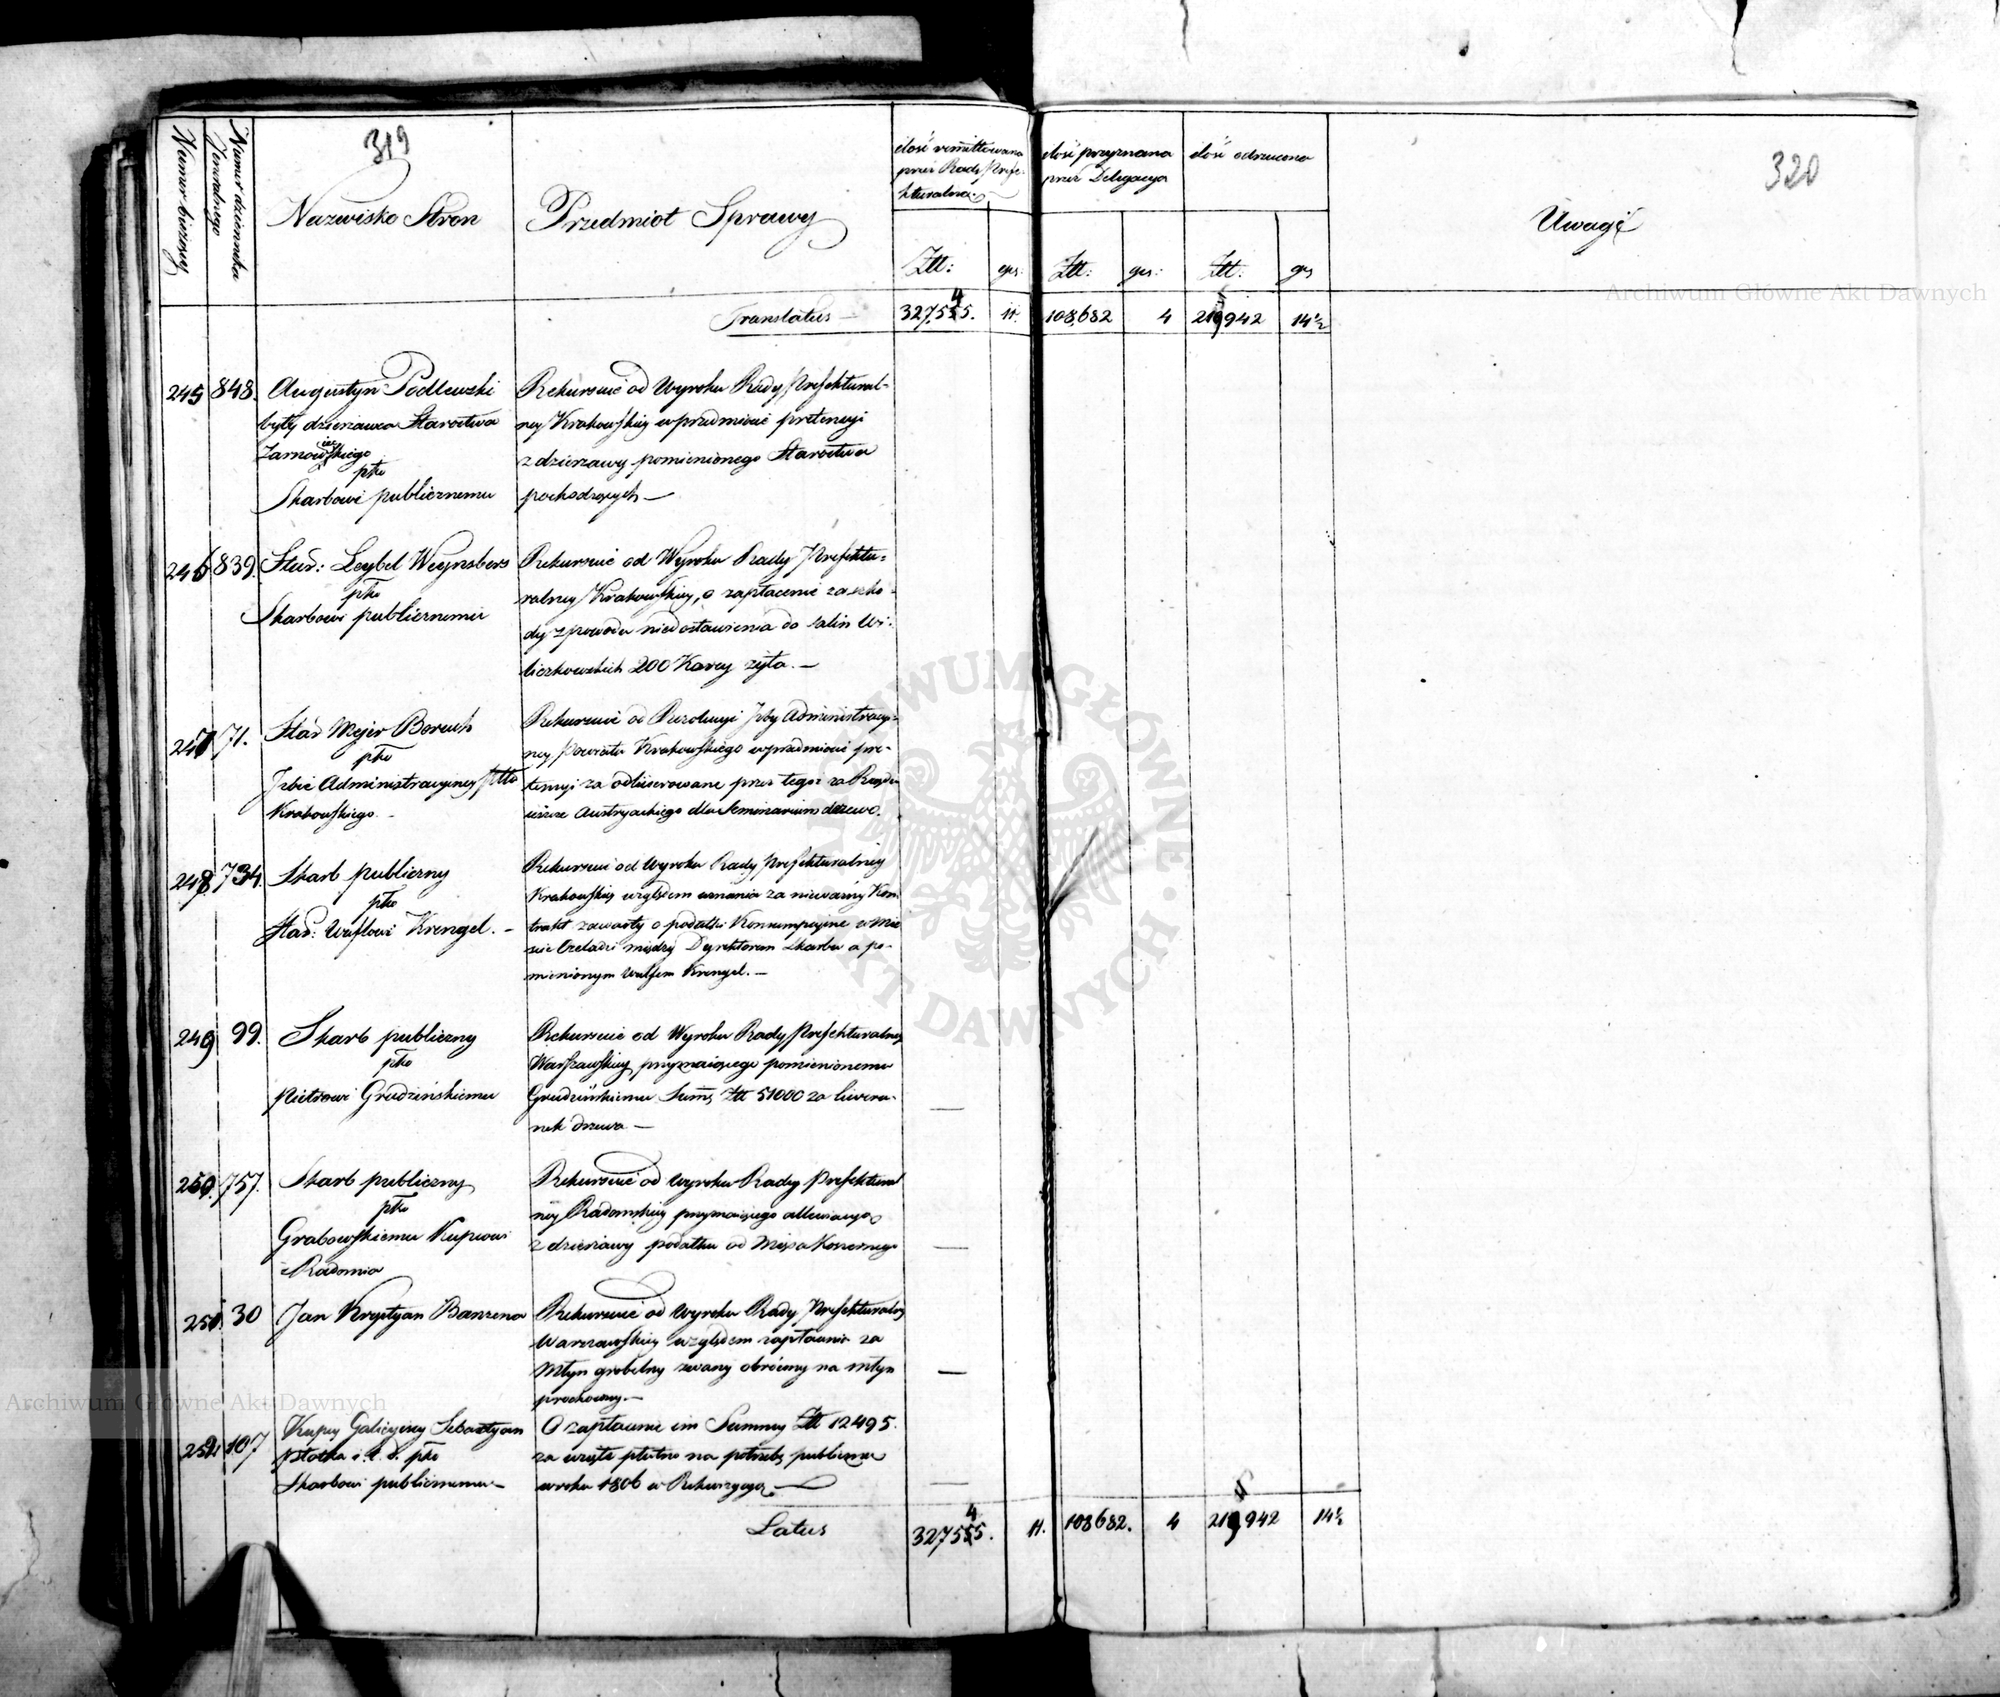 319
320
Numer bieżący
Numer dziennika Jeneralnego
Nazwisko Stron
Przedmiot Sprawy
ilość remittowana
przez Radę Prefe-
kturalną
ilość przyznana
przez Delegacyą
ilość odrzucona
Uwagi
Złł: grs: Złł: grs: Złł: grs
Translatus — 327,545. 11. 108,682 4 218,942 14½
245 848. Augustyn Podlewski
były dzierżawca Starostwa
Żarnowieckiego
pko
Skarbowi publicznemu
Rekursuie od Wyroku Rady Prefektural-
ney Krakowskiey w przedmiocie pretensyi
z dzierżawy pomienionego Starostwa
pochodzących —
246 839. Star: Leybel Weynsberg
pko
Skarbowi publicznemu
Rekursuie od Wyroku Rady Prefektu-
ralney Krakowskiey, o zapłacenie za szko-
dy z powodu niedostawienia do salin Wi-
liczkowskich 200 Korcy żyta. —
247 71. Star Mejer Boruch
pko
Jzbie Administracyjney Pttu
Krakowskiego. -
Rekursuie od Rezolucyi Jzby Administracyj-
ney Powiatu Krakowskiego w przedmiocie pre-
tensyi za odliwerowane przez tegoż za Rządu
ieszcze Austryackiego dla Seminarium drzewo.
248 734. Skarb publiczny
pko
Star: Wulfowi Krengel. -
Rekursuie od Wyroku Rady Prefekturalney
Krakowskiey względem uznania za nieważny Kon
trakt zawarty o podatki Konsumpcyjne w Mie
ście Czeladzi między Dyrektorem Skarbu a po-
mienionym Wulfem Krengel. —
249 99. Skarb publiczny
pko
Piotrowi Grudzińskiemu
Rekursuie od Wyroku Rady Prefekturalney
Warszawskiey przyznaiącego pomienionemu
Grudzińskiemu Summę Złł 51000 za liweru-
nek drzewa —
250. 757. Skarb publiczny
pko
Grabowskiemu Kupcowi
z Radomia
Rekursuie od Wyroku Rady Prefektural
ney Radomskiey przyznaiącego allewiacyą
z dzierżawy podatku od Mięsa Koszernego
251. 30 Jan Krystyan Banzena
Rekursuie od Wyroku Rady Prefekturalney
Warszawskiey względem zapłacenia za
Młyn grobelny zwany obrócony na młyn
prochowy. —
252 107 Kupcy Galicyiscy Sebastyan
Płotka i. t. d. pko
Skarbowi publicznemu —
O zapłacenie im Summy Złł 12495.
za wzięte płótno na potrzebę publiczną
w roku 1806 w Rekwizycyą —
Latus 327545. 11. 108682. 4 218,942 14½
Archiwum Główne Akt Dawnych
Archiwum Główne Akt Dawnych
ARCHIWUM GŁÓWNE AKT DAWNYCH